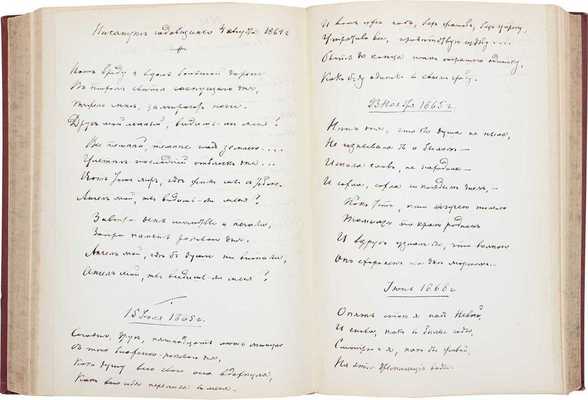 Накануне годовщины 4 августа 1864 г.
Вот бреду я вдоль большой дороги
В тихом свете гаснущего дня,
Тяжело мне, замирают ноги.
Друг мой милый, видишь ли меня?
Все темней, темнее над землею....
Улетел последний отблеск дня...
Вот тот мир, где жили мы с тобою.
Ангел мой, ты видишь ли меня?
Завтра день молитвы и печали,
Завтра память рокового дня.
Ангел мой, где б души ни витали,
Ангел мой, ты видишь ли меня?
15 Июля 1865 г.
Сегодня, друг, пятнадцать лет минуло
С того блаженно рокового дня,
Как душу всю свою она вдохнула,
Как всю себя перелила в меня.
И вот уж год, без жалоб, без упреку,
Утратив все, приветствую судьбу...
Быть до конца так страшно одиноку,
Как буду одинок в своем гробу.
23 Ноября 1865 г.
Нет дня, чтобы душа не ныла,
Не изнывала б о былом —
Искала слов, не находила —
И сохла, сохла с каждым днем, —
Как тот, кто жгучею тоскою
Томился по краю родном
И вдруг узнал бы, что волною
Он схоронен на дне морском. —
Июнь 1866 г.
Опять стою я над Невой,
И снова, как в былые годы,
Смотрю и я, как бы живой,
На эти дремлющие воды.